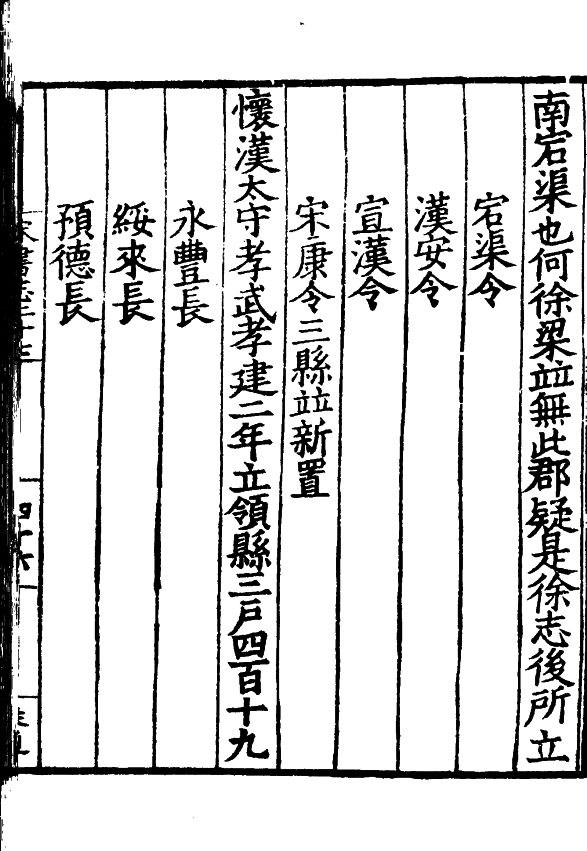 南宕渠也何徐梁竝無此郡疑是徐志後所立
宕渠令
漢安令
宣漢令
宋康令三縣竝新置
懷漢太守孝武孝建二年立領縣三戶四百十九
永豐長
綏來長
預德長
宋書志二十七
四十六